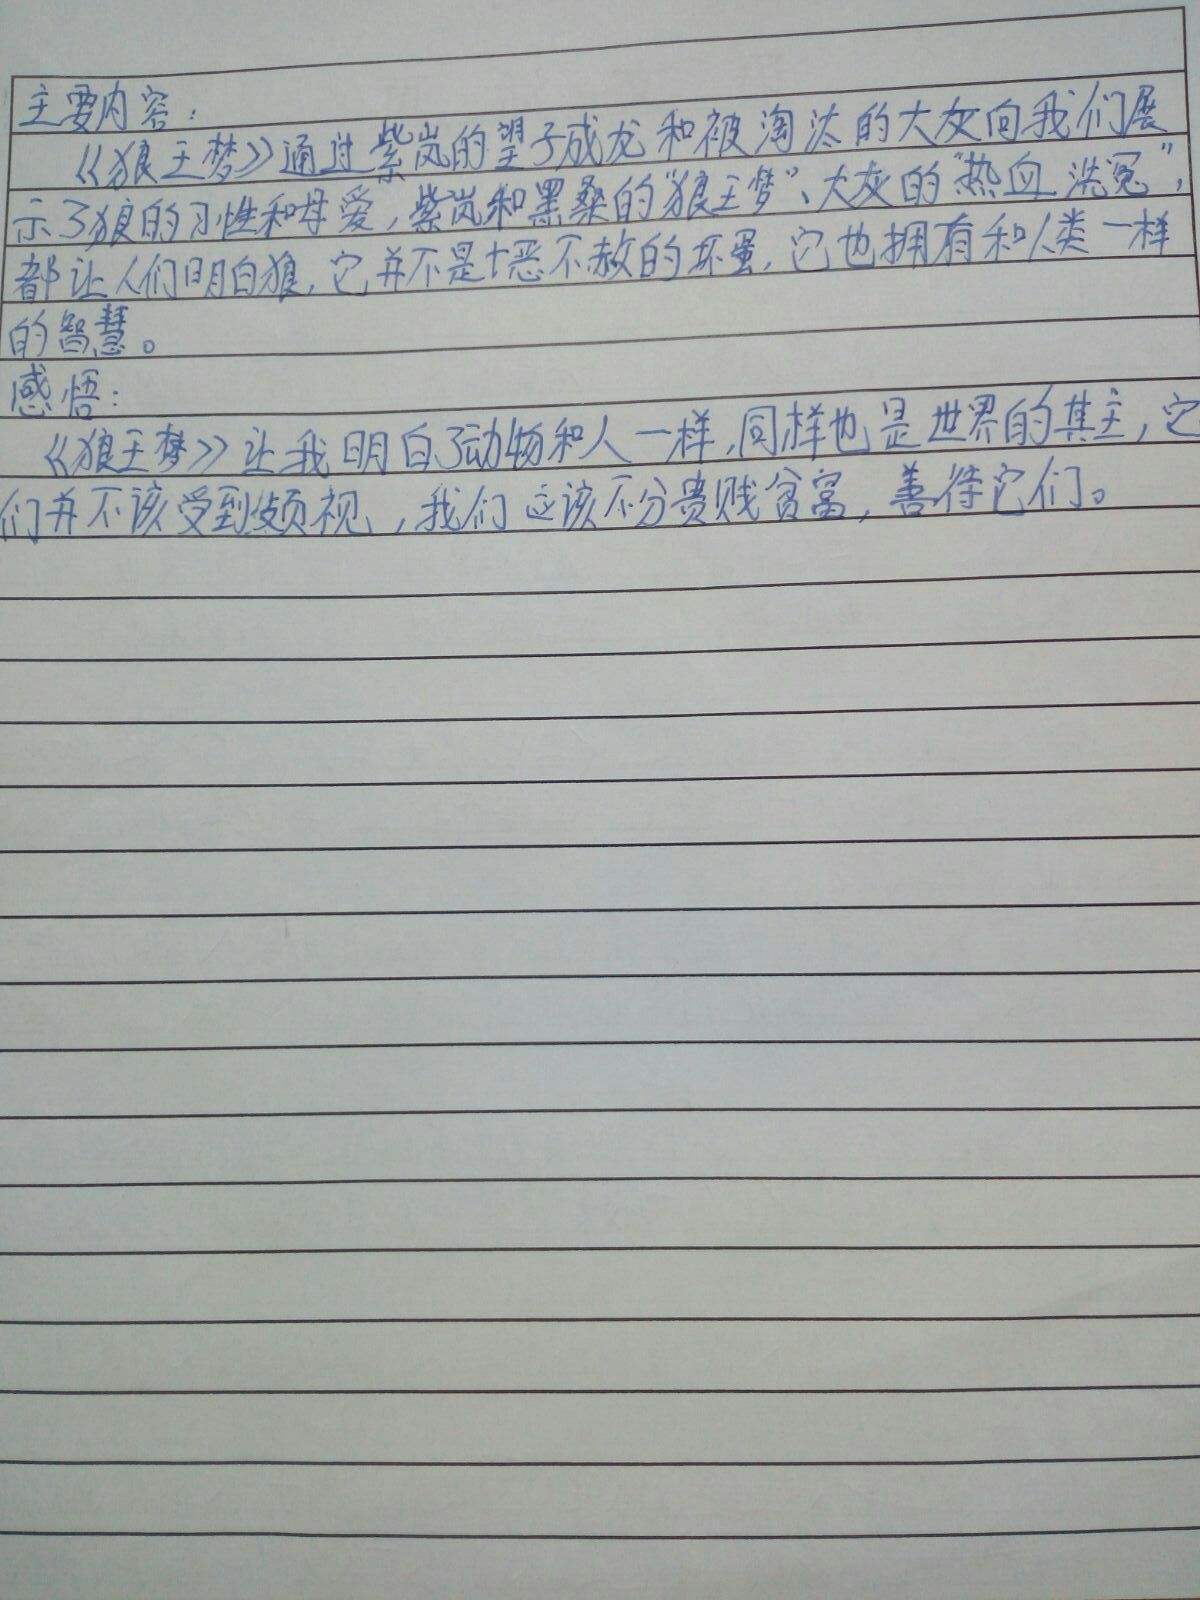 主要内容：
《狼王梦》通过紫岚的望子成龙和被淘汰的大灰向我们展
示了狼的习性和母爱，紫岚和黑桑的“狼王梦”、大灰的“热血洗冤”，
都让人们明白狼，它并不是十恶不赦的坏蛋，它也拥有和人类一样
的智慧。
感悟：
《狼王梦》让我明白了动物和人一样，同样也是世界的其主，它
们并不该受到歧视，我们应该不分贵贱贫富，善待它们。